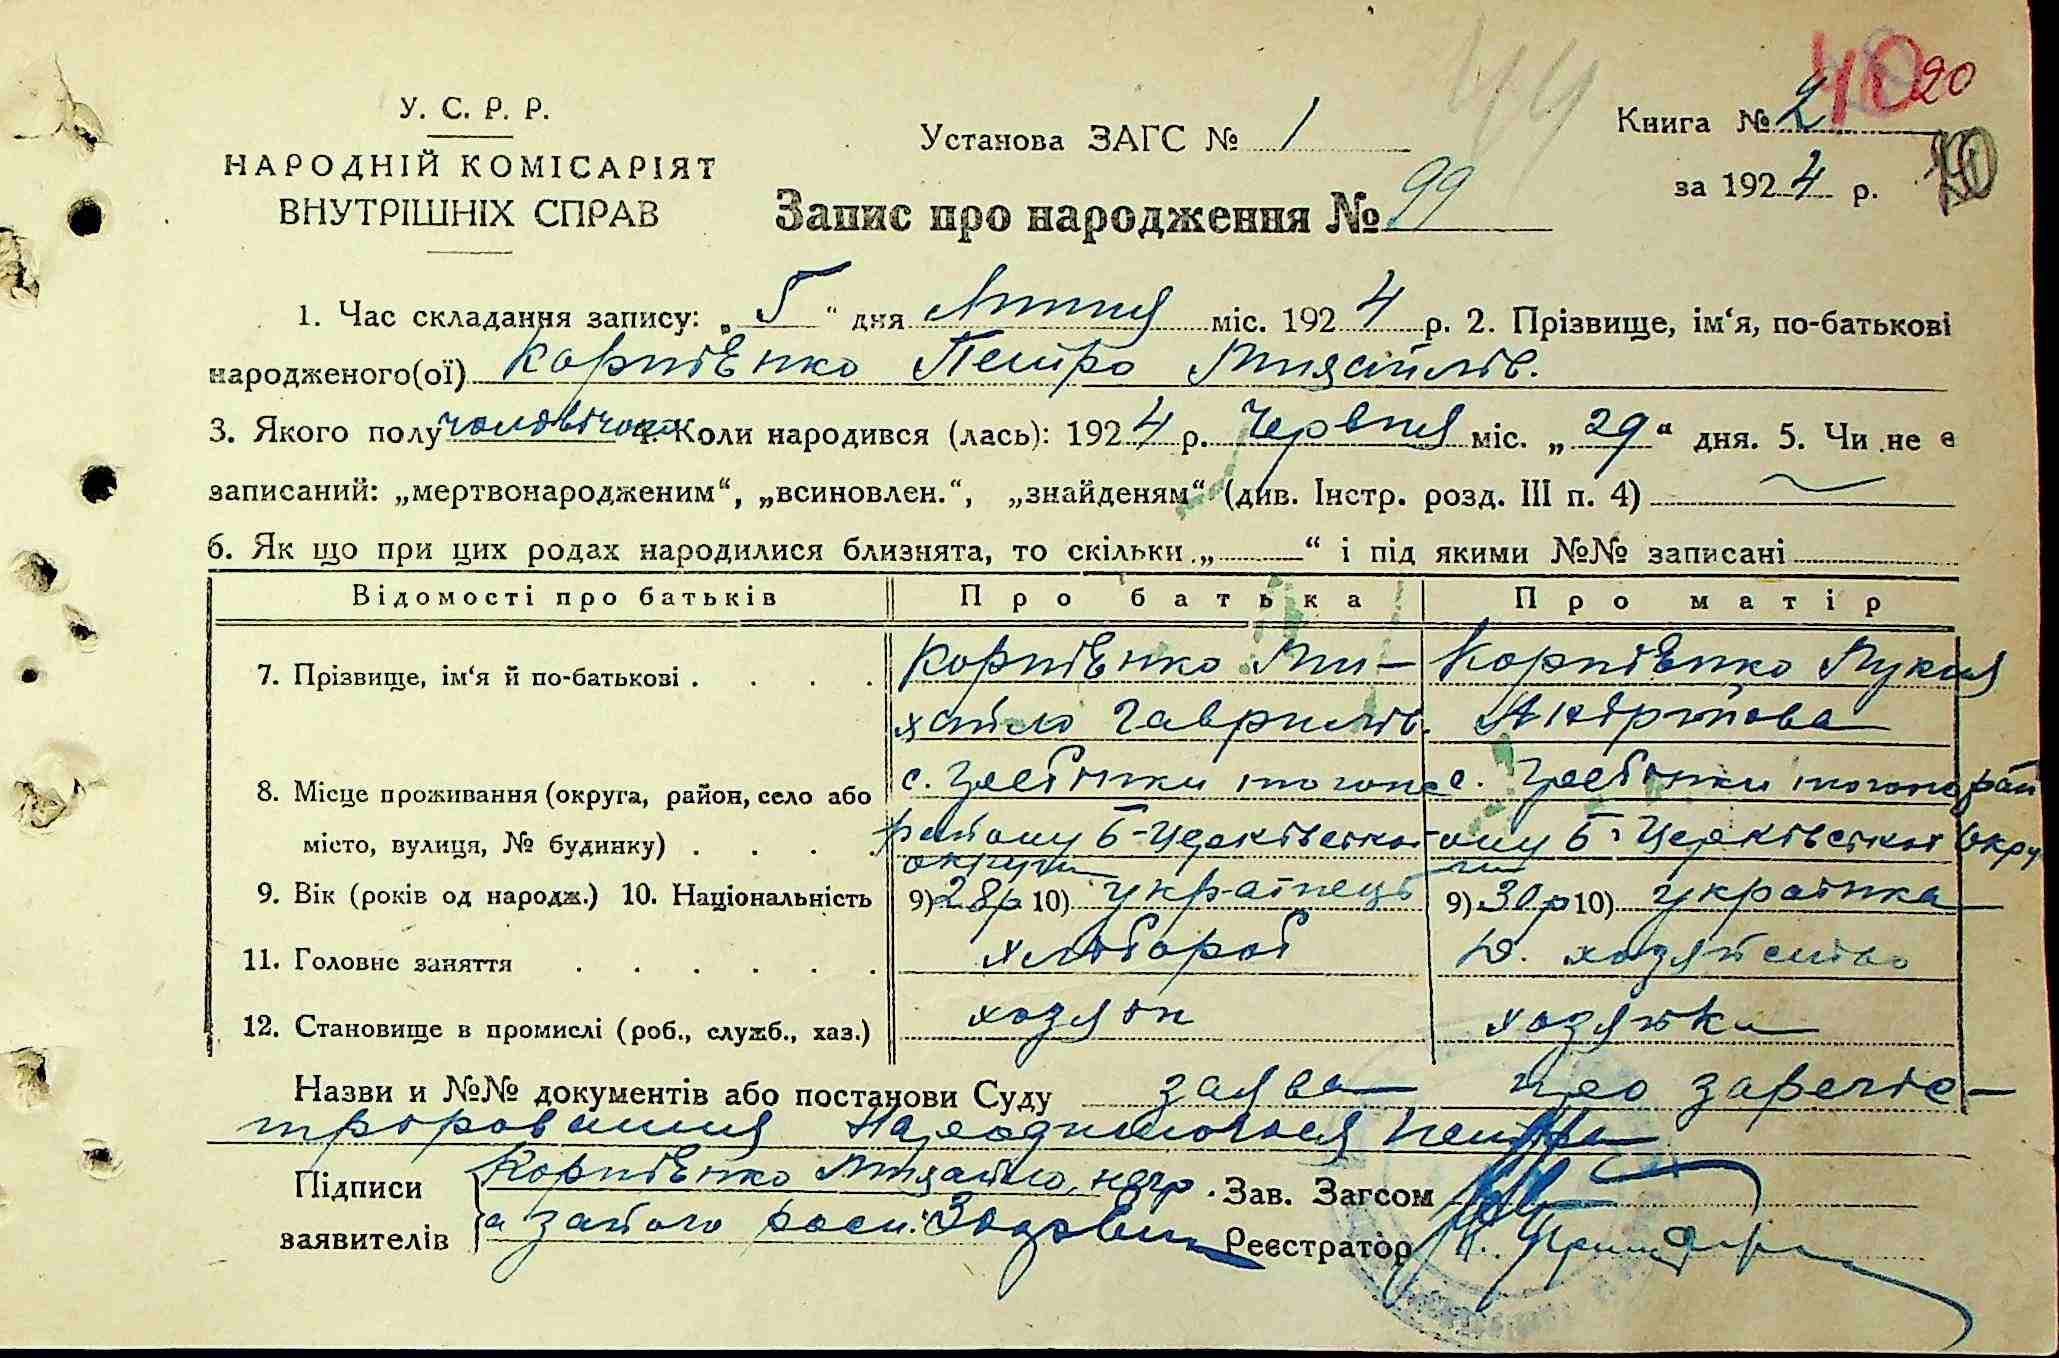 44
40 20
У. С. Р. Р.
НАРОДНІЙ КОМІСАРІЯТ
ВНУТРІШНІХ СПРАВ
Установа ЗАГС № 1
Книга № 2
за 1924 р.
Запис про народження № 99
1. Час складання запису: „ 5 “ дня Липня міс. 1924 р. 2. Прізвище, ім‘я, по-батькові
народженого(ої) Корнієнко Петро Михайлів.
3. Якого полу чоловічого 4. Коли народився (лась): 1924 р. Червня міс. „ 29 “ дня. 5. Чи не є
записаний: „мертвонародженим“, „всиновлен.“, „знайденям“ (див. Інстр. розд. III п. 4)
6. Як що при цих родах народилися близнята, то скільки „ “ і під якими №№ записані
Відомості про батьків Про батька Про матір
7. Прізвище, ім‘я й по-батькові . . . . Корнієнко Ми- Корнієнко Лукия
хайло Гаврилів. Андріївна
8. Місце проживання (округа, район, село або с. Гребінки того с. Гребінки того рай
місто, вулиця, № будинку) . . . . району Б-Церківської ону Б-Церківської окру
округи ги
9. Вік (років од народж.) 10. Національність 9) 28р 10) українець 9) 30р 10) українка
11. Головне заняття . . . . . . хлібороб Д. хозяйство
12. Становище в промислі (роб., служб., хаз.) хозяін хозяйка
Назви и №№ документів або постанови Суду заява про зареґіс-
тріровання Народившогося Петра
Підписи Корнієнко Михайло, негр. Зав. Загсом
заявителів а за його росп. Реєстратор